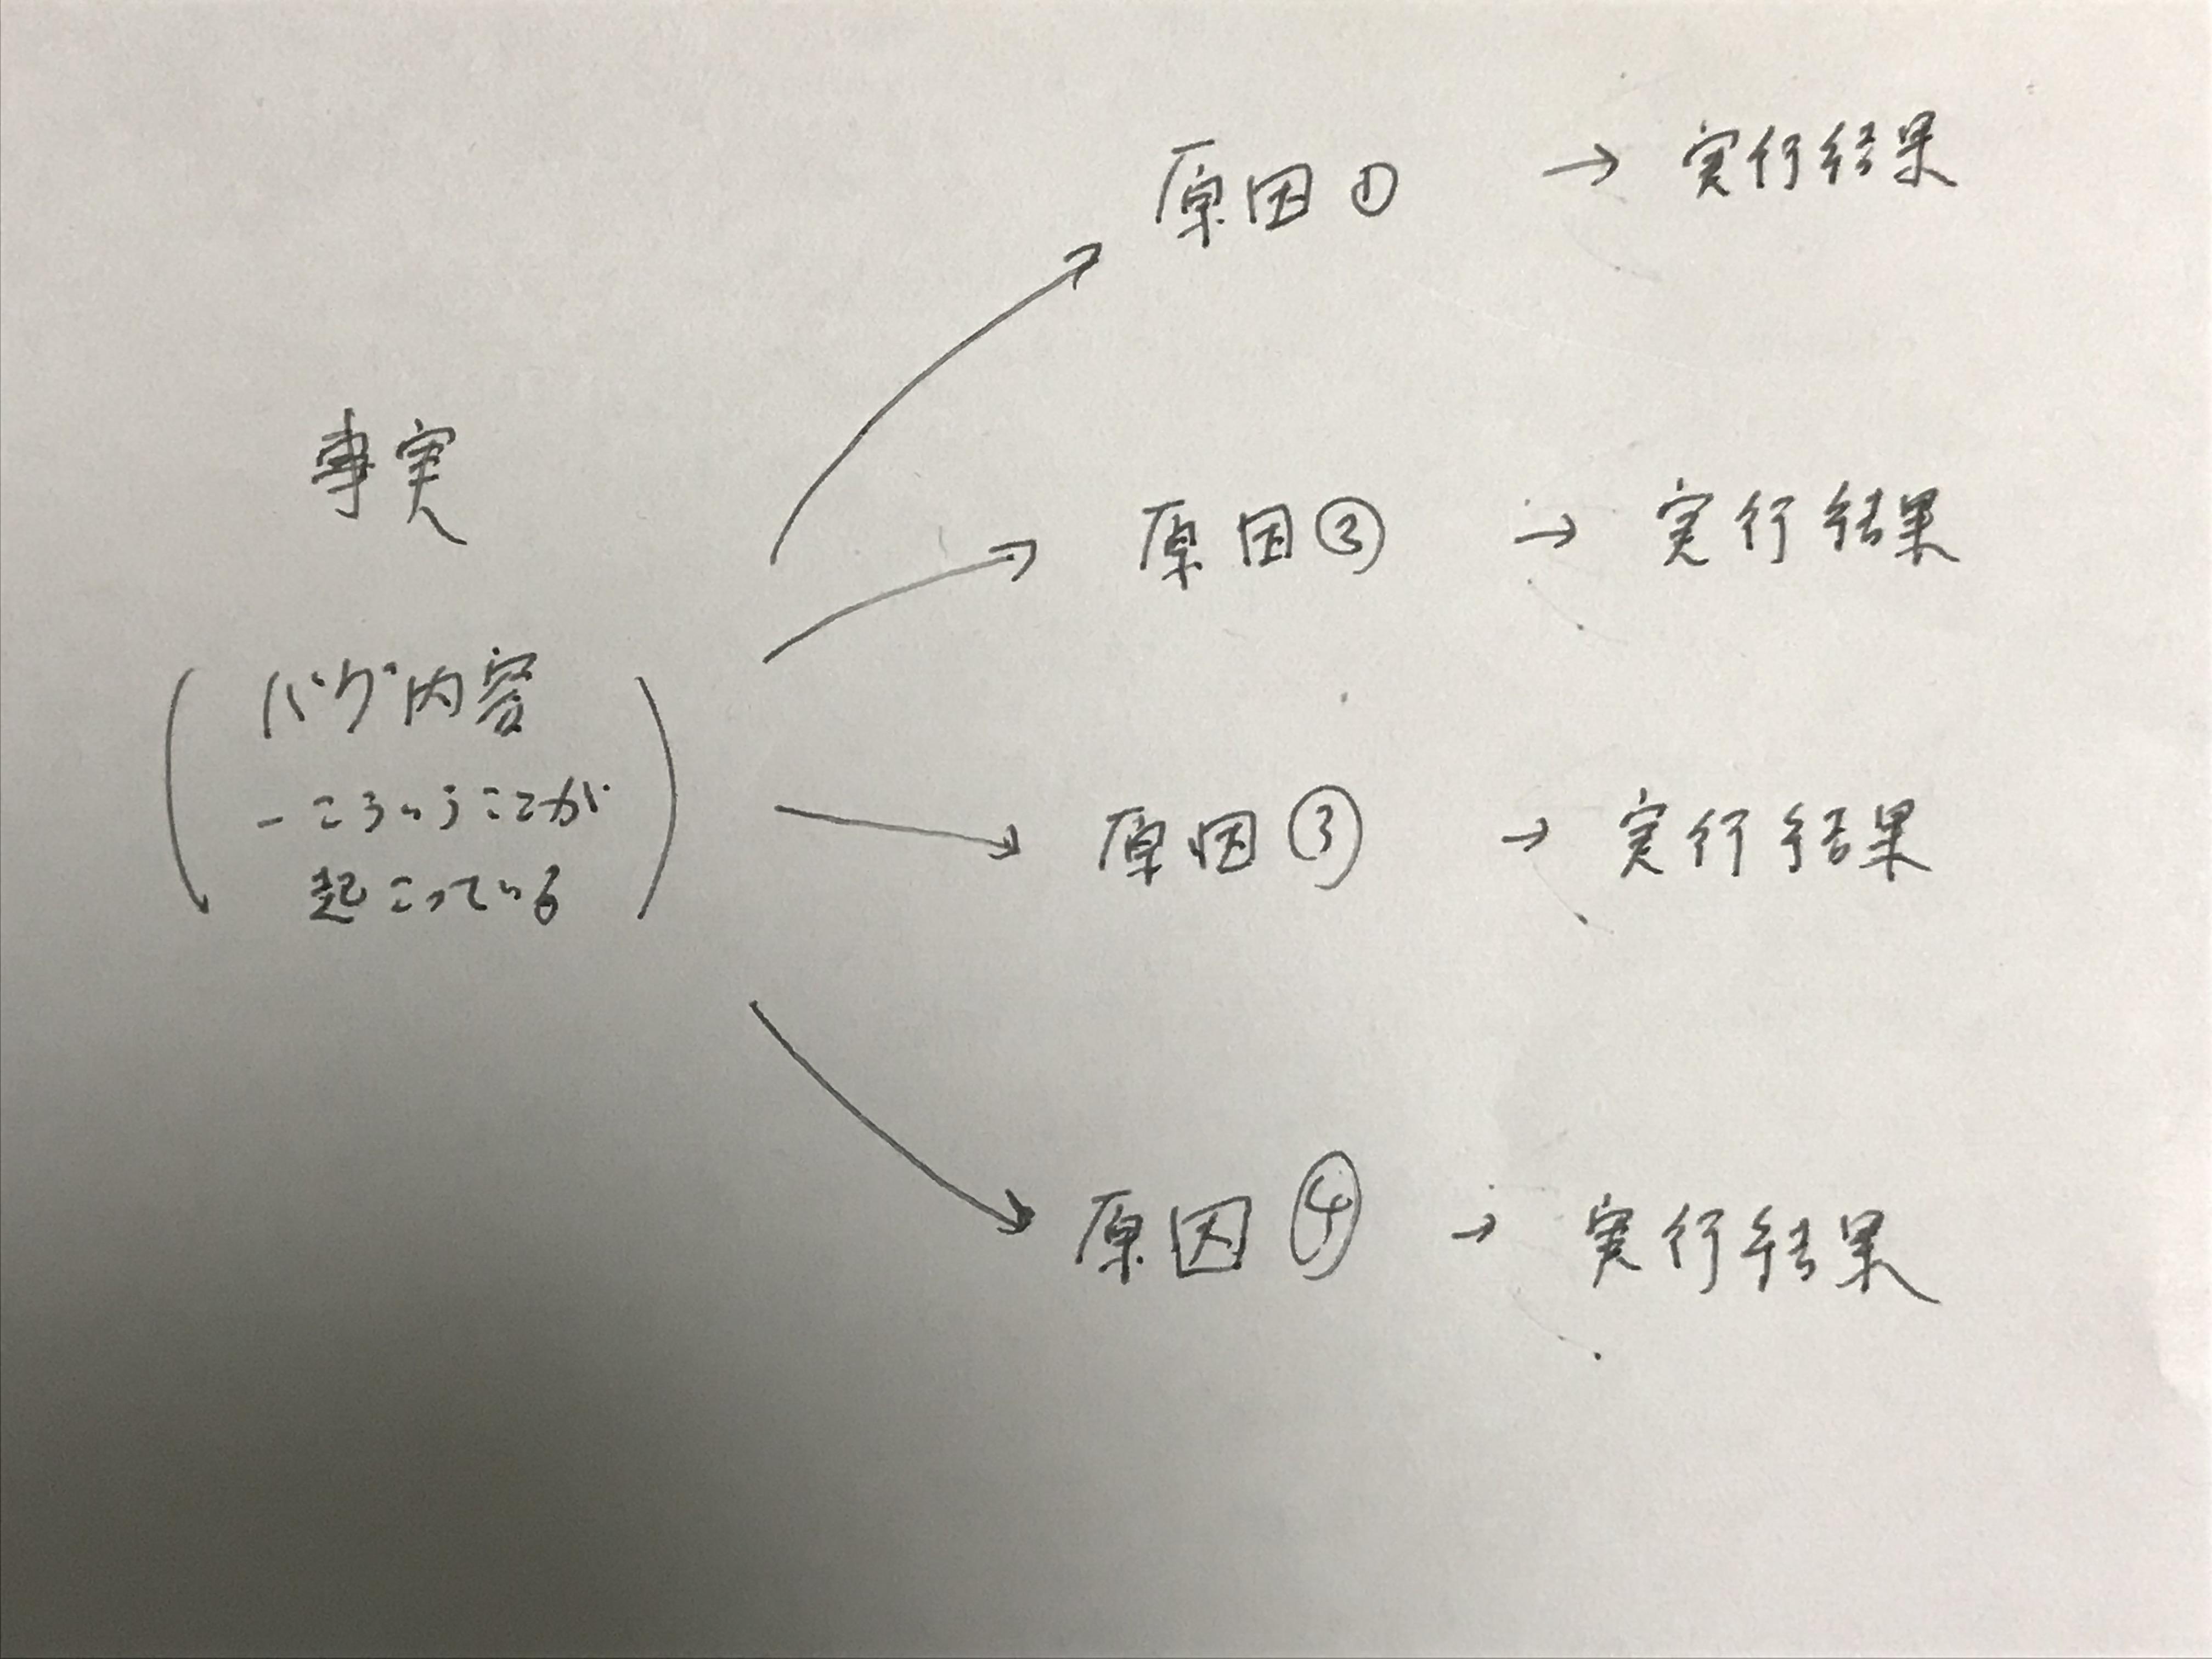 事実
バグ内容
- こういうことが
起こっている
原因① → 実行結果
原因② → 実行結果
原因③ → 実行結果
原因④ → 実行結果